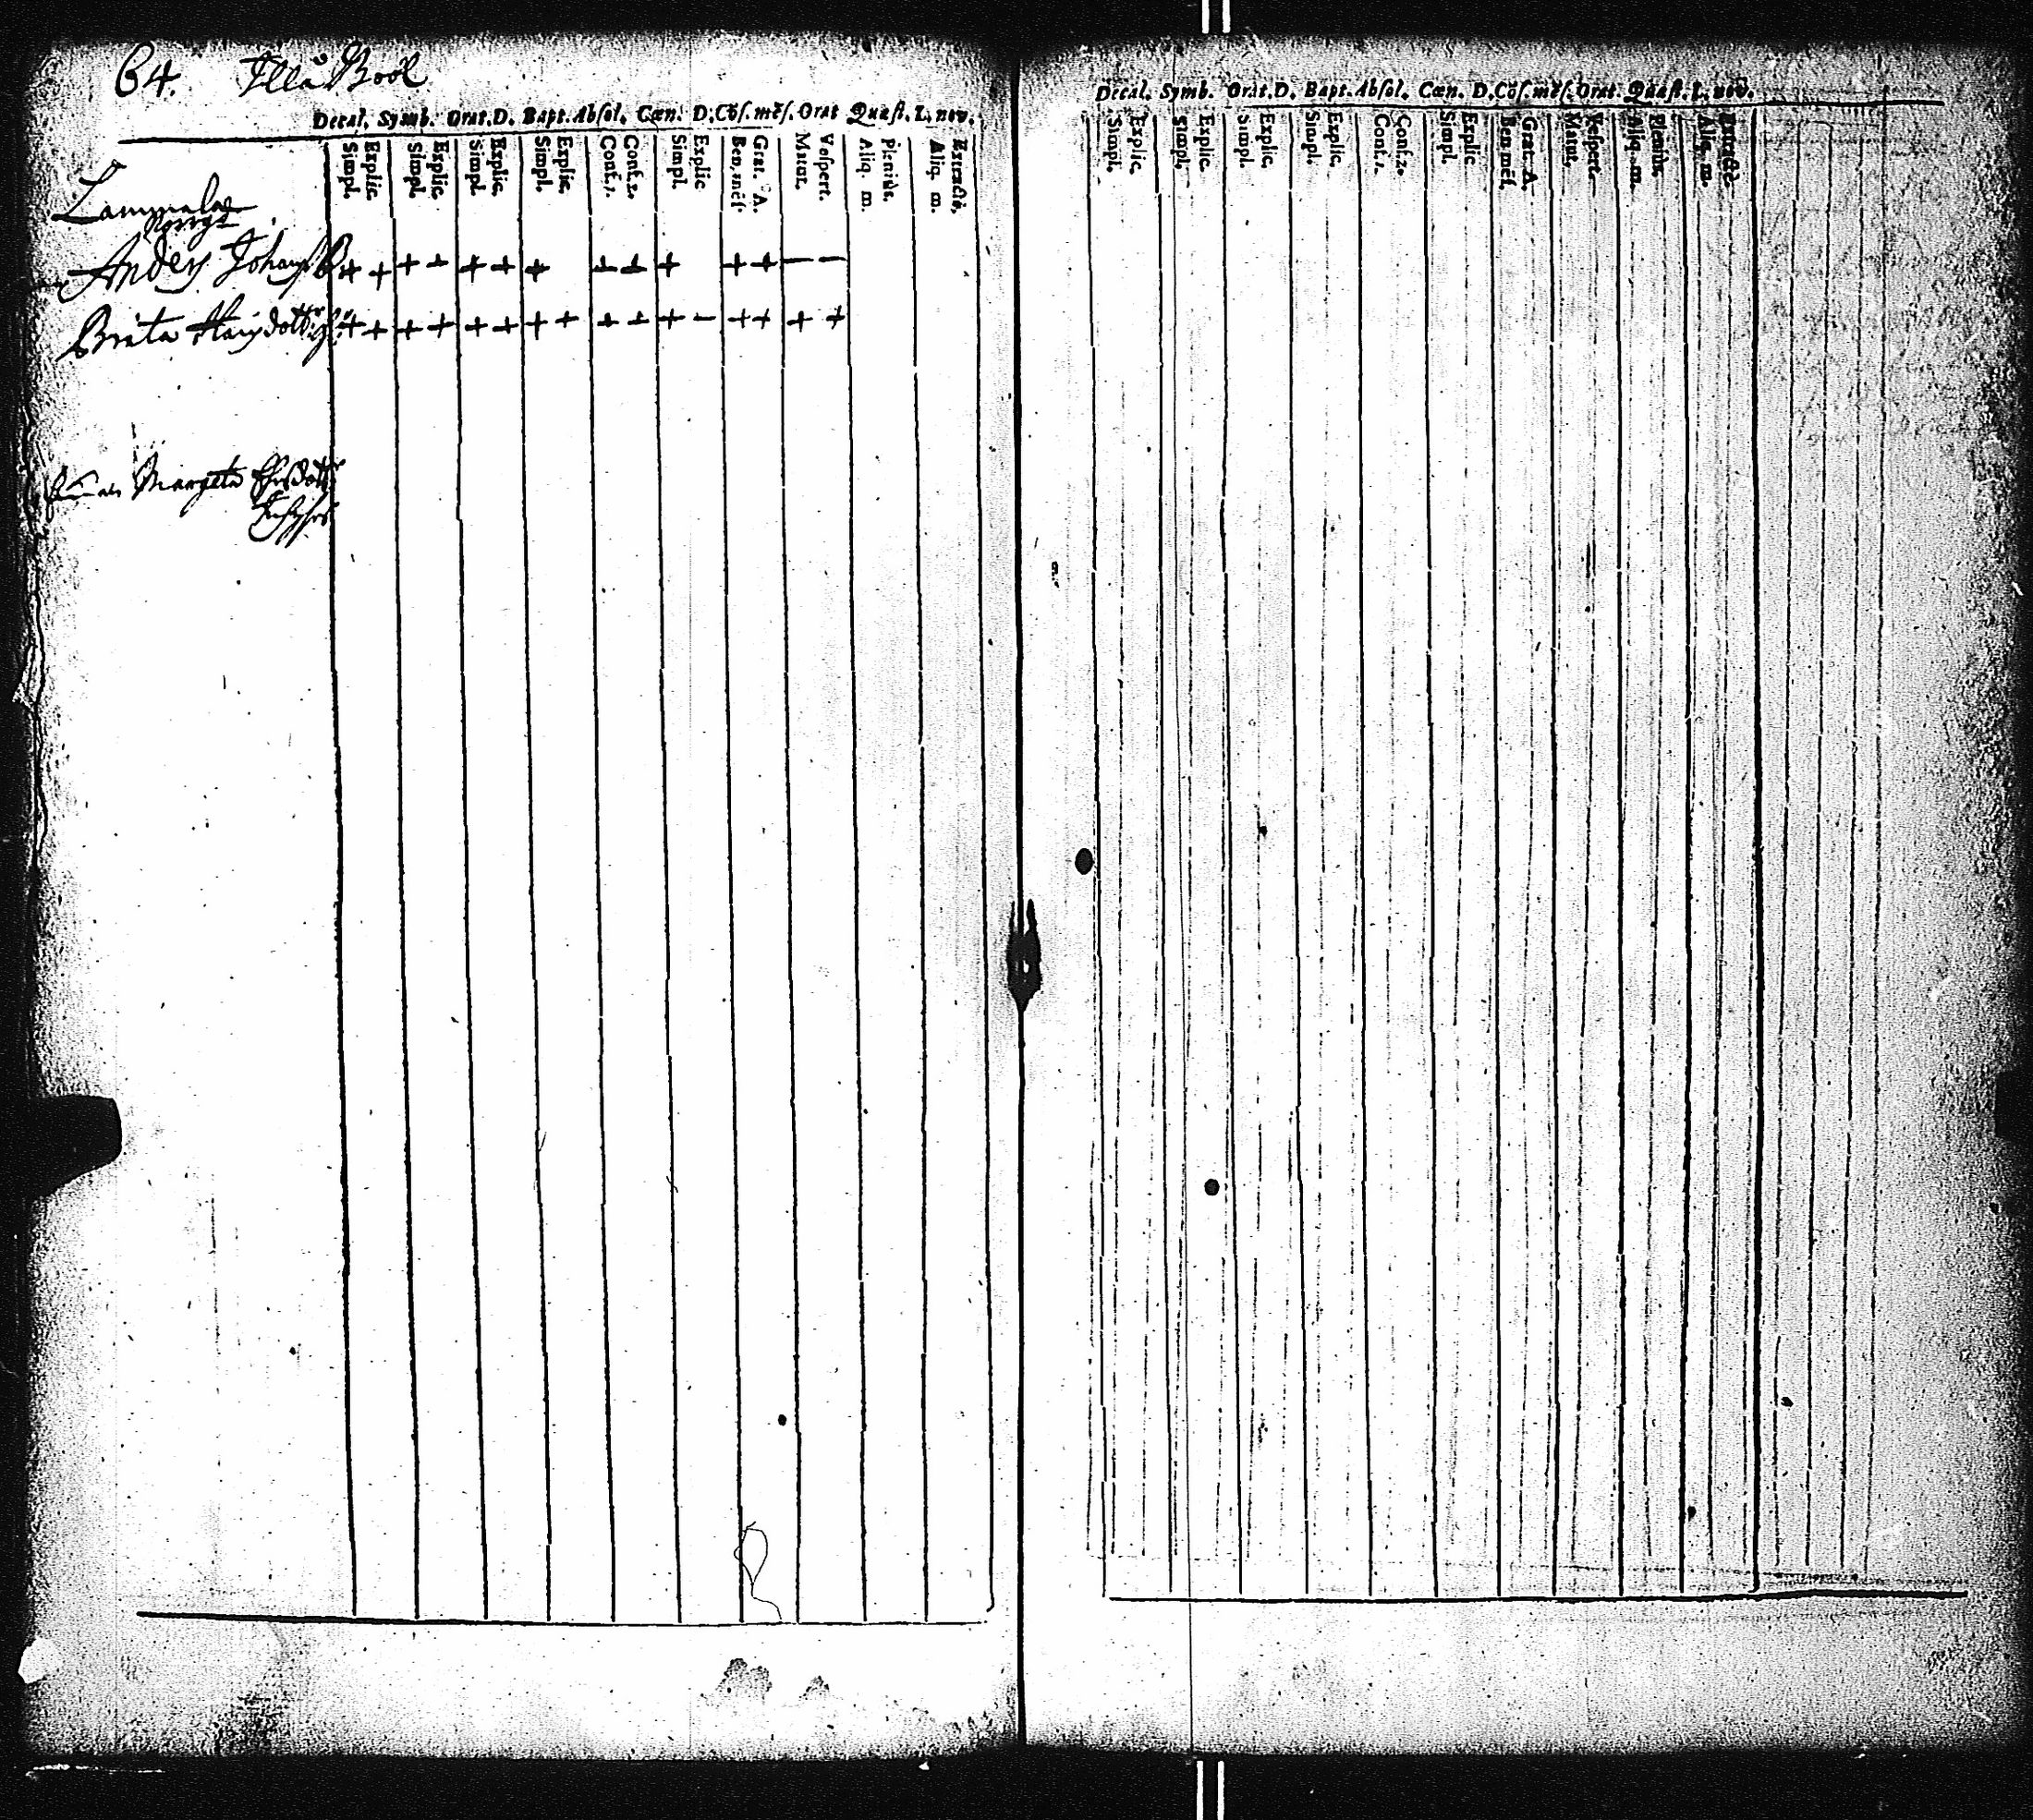 64. Illå Bool
Decal. Symb. Orat.D. Bapt. Absol. Cœn. D. Cōſ. mēſ. Orat Quæſt. L. nov.
Simpl. Explic. Simpl. Explic. Simpl. Explic. Simpl. Explic. Conf.1. Conf.2. Simpl. Explic Ben. mēſ. Grat. A. Matut. Veſpert. Aliq. m. Pleniùs. Aliq. m. Extractè.
Anders Johans + + + + + + + + + + + + — —
Brita Hansdotter + + + + + + + + + + + — + + + +
Margeta
Decal. Symb. Orat.D. Bapt. Absol. Cœn. D. Cōſ. mēſ. Orat. Quæſt. L. nov.
Simpl. Explic. Simpl. Explic. Simpl. Explic. Simpl. Explic. Conf.1. Conf.2. Simpl. Explic. Ben mēſ. Grat. A. Matut. Veſpert. Aliq. m. Pleniùs. Aliq. m. Extractè.